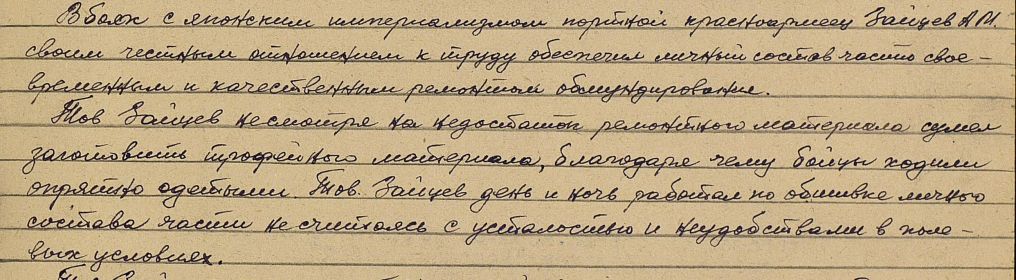 В боях с японским империализмом портной красноармеец Зайцев А М.
своим честным отношением к труду обеспечил личный состав части свое-
временным и качественным ремонтом обмундирования.
Тов Зайцев несмотря на недостаток ремонтного материала сумел
заготовить трофейного материала, благодаря чему бойцы ходили
опрятно одетыми. Тов. Зайцев день и ночь работал по обшивке личного
состава части не считаясь с усталостью и неудобствами в поле-
вых условиях.